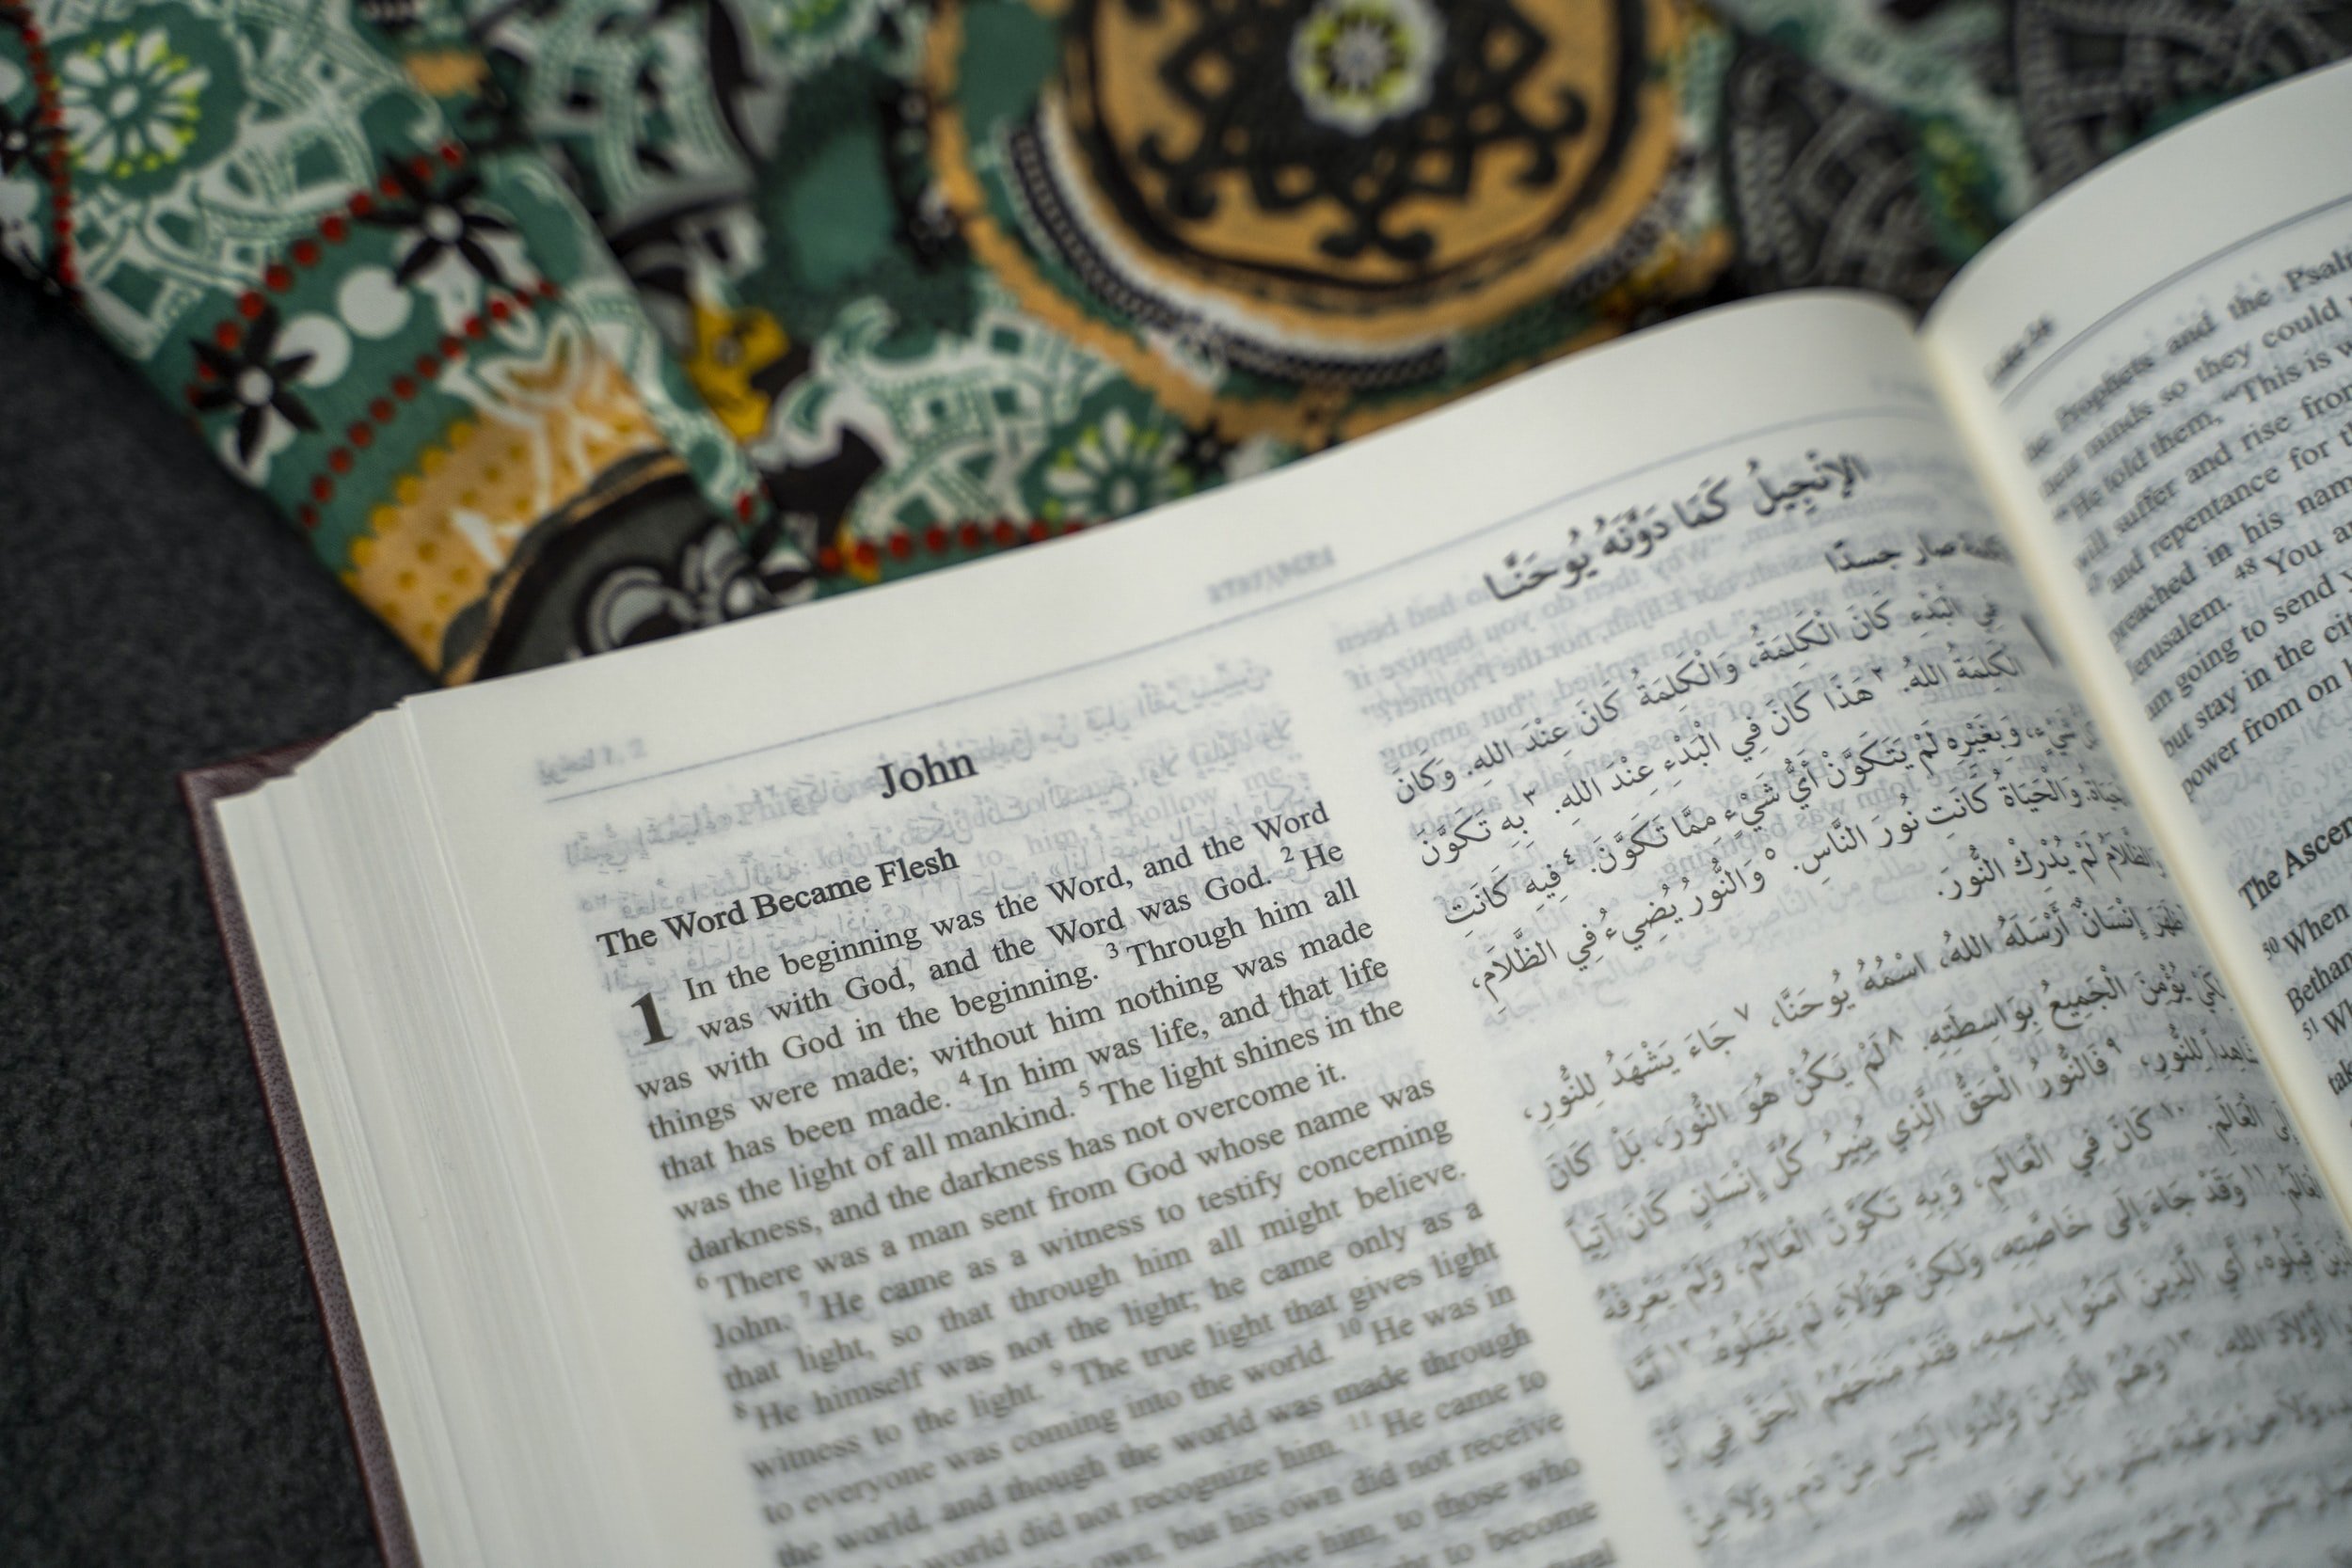 John
The Word Became Flesh
1 In the beginning was the Word, and the Word
was with God, and the Word was God. 2 He
was with God in the beginning. 3 Through him all
things were made; without him nothing was made
that has been made. 4 In him was life, and that life
was the light of all mankind. 5 The light shines in the
darkness, and the darkness has not overcome it.
6 There was a man sent from God whose name was
John. 7 He came as a witness to testify concerning
that light, so that through him all might believe.
8 He himself was not the light; he came only as a
witness to the light. 9 The true light that gives light
to everyone was coming into the world. 10 He was in
the world, and though the world was made through
world did not recognize him. 11 He came to
own, but his own did not receive
him, to those who
to become
الإنْجِيلُ كَمَا دَوَّنَهُ يُوحَنَّا
صار جسدًا
فِي الْبَدْءِ كَانَ الْكَلِمَةُ، وَالْكَلِمَةُ كَانَ عِنْدَ اللهِ. وَكَانَ
الْكَلِمَةُ اللهُ. ٢ هَذَا كَانَ فِي الْبَدْءِ عِنْدَ اللهِ. ٣ بِهِ تَكَوَّنَ
شَيْءٍ، وَبِغَيْرِهِ لَمْ يَتَكَوَّنْ أَيُّ شَيْءٍ مِمَّا تَكَوَّنَ. ٤ فِيهِ كَانَتِ
الْحَيَاةُ. وَالْحَيَاةُ كَانَتِ نُورَ النَّاسِ. ٥ وَالنُّورُ يُضِيءُ فِي الظَّلَامِ،
وَالظَّلَامُ لَمْ يُدْرِكْ النُّورَ.
ظَهَرَ إِنْسَانٌ أَرْسَلَهُ اللهُ، اسْمُهُ يُوحَنَّا، ٧ جَاءَ يَشْهَدُ لِلنُّورِ،
لِكَيْ يُؤْمِنَ الْجَمِيعُ بِوَاسِطَتِهِ. ٨ لَمْ يَكُنْ هُوَ النُّورَ، بَلْ كَانَ
شَاهِداً لِلنُّورِ، ٩ فَالنُّورُ الْحَقُّ الَّذِي يُنِيرُ كُلَّ إِنْسَانٍ كَانَ آتِياً
إِلَى الْعَالَمِ. ١٠ كَانَ فِي الْعَالَمِ، وَبِهِ تَكَوَّنَ الْعَالَمُ، وَلَمْ يَعْرِفْهُ
الْعَالَمُ. ١١ وَقَدْ جَاءَ إِلَى خَاصَّتِهِ، وَلكِنَّ هَؤُلَاءِ لَمْ يَقْبَلُوهُ. ١٢ أَمَّا
الَّذِينَ قَبِلُوهُ، أَيِ الَّذِينَ آمَنُوا بِاسْمِهِ، فَقَدْ مَنَحَهُمُ الْحَقَّ فِي أَنْ
أَوْلَادَ اللهِ، ١٣ وَهُمُ الَّذِينَ وُلِدُوا لَيْسَ مِنْ دَمٍ، وَلَا مِنْ
Prophets and the
minds so they could
"He told them, "This is
will suffer and rise from
and repentance for
preached in his name
Jerusalem. 48 You
am going to send
but stay in the
power from on
The
50 When
51